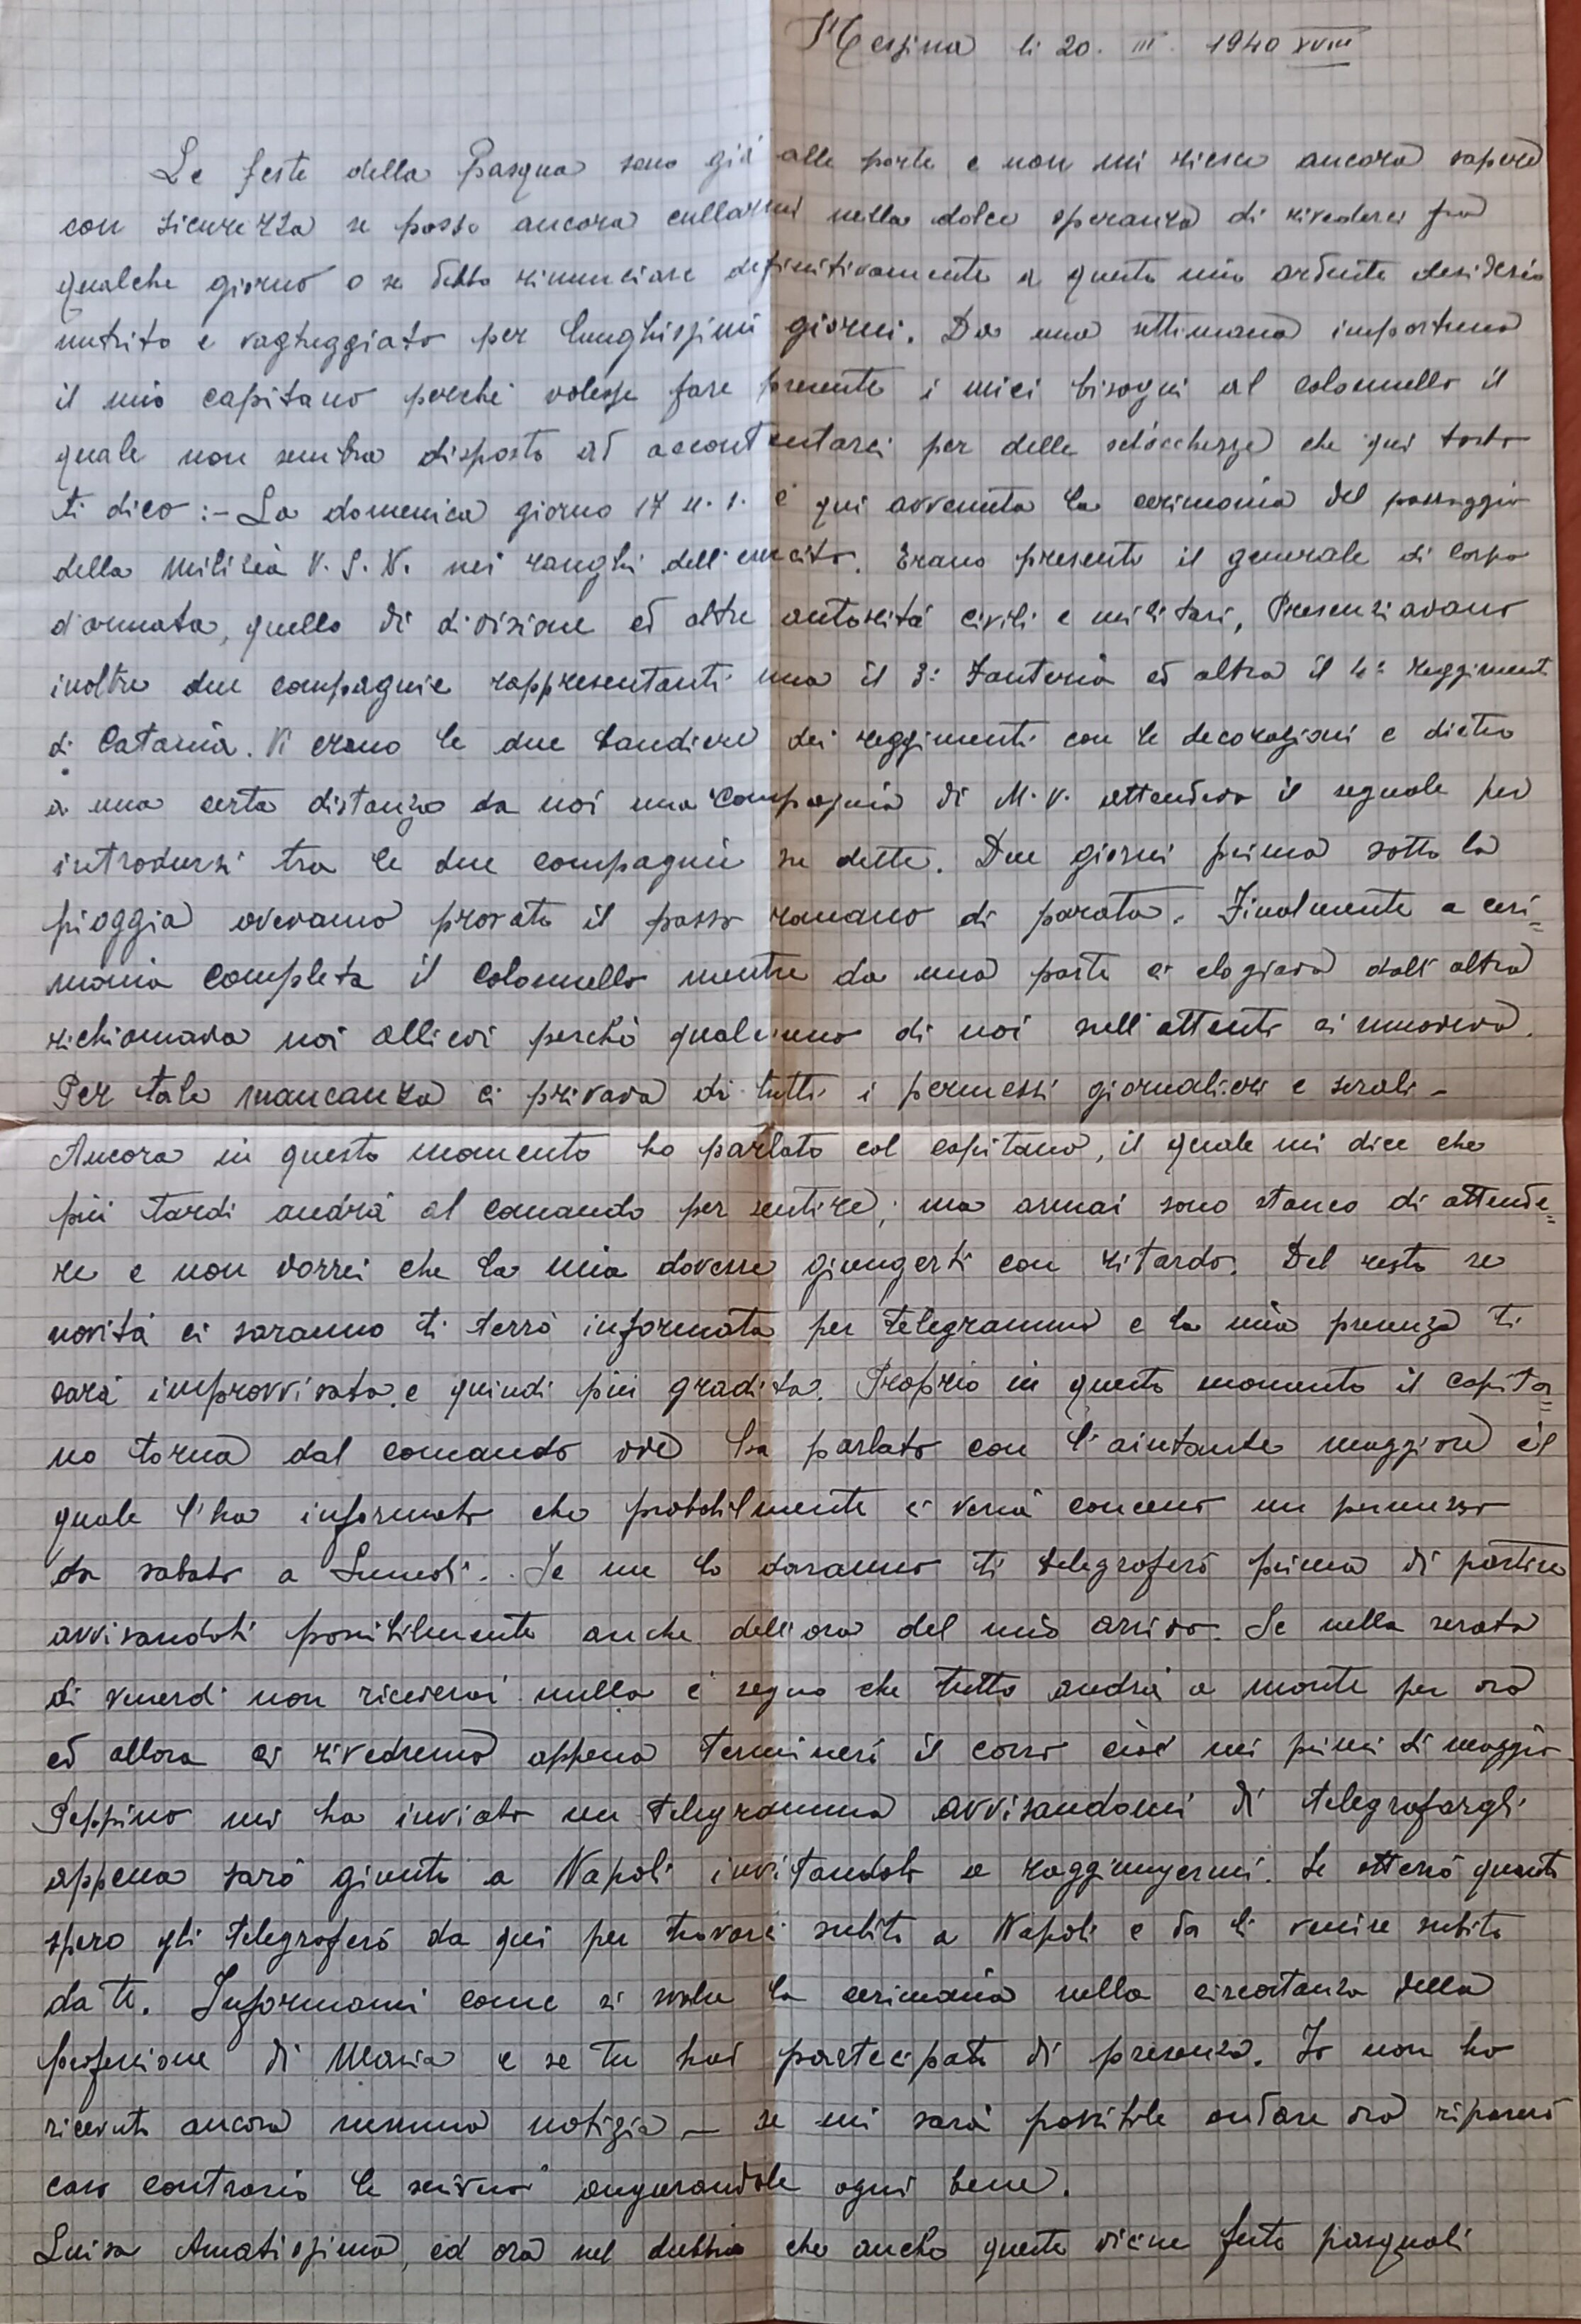 Messina li 20. III. 1940 XVIII
Le feste della Pasqua sono già alle porte e non mi riesce ancora sapere
con sicurezza se posso ancora cullarmi nella dolce speranza di rivederci fra
qualche giorno o se debbo rinunciare definitivamente a questo mio ardente desiderio
nutrito e vagheggiato per lunghissimi giorni. Da una settimana importuno
il mio capitano perché volesse fare presente i miei bisogni al colonnello il
quale non sembra disposto ad accontentarci per delle sciocchezze che qui tosto
ti dico :- La domenica giorno 17 u.s. è qui avvenuta la cerimonia del passaggio
della Milizia V. S. N. nei ranghi dell'esercito. Erano presenti il generale di Corpo
d'armata, quello di divisione ed altre autorità civili e militari, Presenziavano
inoltre due compagnie rappresentanti una il 3: Fanteria ed altra il 4: reggiment
di Catania. Vi erano le due bandiere dei reggimenti con le decorazioni e dietro
a una certa distanza da noi una compagnia di M. V. attendeva il segnale per
introdursi tra le due compagnie su dette. Due giorni prima sotto la
pioggia avevamo provato il passo romano di parata. Finalmente a ceri=
monia completa il Colonnello mentre da una parte ci elogiava dall'altra
richiamava noi allievi perché qualcuno di noi sull'attenti si muoveva.
Per tale mancanza ci privava di tutti i permessi giornalieri e serali -
Ancora in questo momento ho parlato col capitano, il quale mi dice che
più tardi andrà al comando per sentire; ma ormai sono stanco di attende=
re e non vorrei che la mia dovesse giungerti con ritardo. Del resto se
novità ci saranno ti terrò informata per telegramma e la mia presenza ti
sarà improvvisata e quindi più gradita. Proprio in questo momento il capita=
no torna dal comando ove ha parlato con l'aiutante maggiore il
quale l'ha informato che probabilmente ci verrà concesso un permesso
da sabato a Lunedì. Se me lo daranno ti telegraferò prima di partire
avvisandoti possibilmente anche dell'ora del mio arrivo. Se nella serata
di venerdì non riceverai nulla è segno che tutto andrà a monte per ora
ed allora ci rivedremo appena terminerà il corso cioè nei primi di maggio.
Peppino mi ha inviato un telegramma avvisandomi di telegrafargli
appena sarò giunto a Napoli invitandolo a raggiungermi. Se otterrò quanto
spero gli telegraferò da qui per trovarsi subito a Napoli e da lì venire subito
da te. Informami come si svolse la cerimonia nella circostanza della
professione di Maria e se tu hai partecipato di presenza. Io non ho
ricevuto ancora nessuna notizia - se mi sarà possibile andare ora riparerò
caso contrario le scriverò augurandole ogni bene.
Luisa Amatissima, ed ora nel dubbio che anche queste vicine feste pasquali